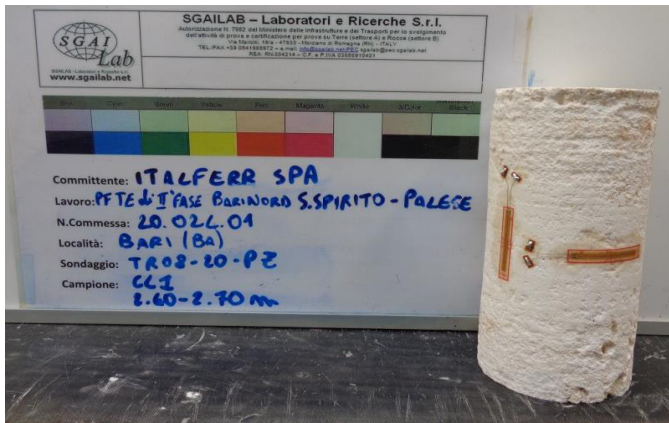 SGAI
Lab
SGAILAB - Laboratori e Ricerche S.r.l.
www.sgailab.net
SGAILAB – Laboratori e Ricerche S.r.l.
Autorizzazione N. 7982 del Ministero delle Infrastrutture e dei Trasporti per lo svolgimento
dell'attività di prova e certificazione per prove su Terre (settore A) e Rocce (settore B)
Blue Cyan Green Yellow Red Magenta White 3/Color Black
Committente: ITALFERR SPA
Lavoro: PFTE di II°FASE BARI NORD S.SPIRITO - PALESE
N.Commessa: 20.022.01
Località: BARI (BA)
Sondaggio: TR08-20-PZ
Campione: CL1
2.60-2.70 m